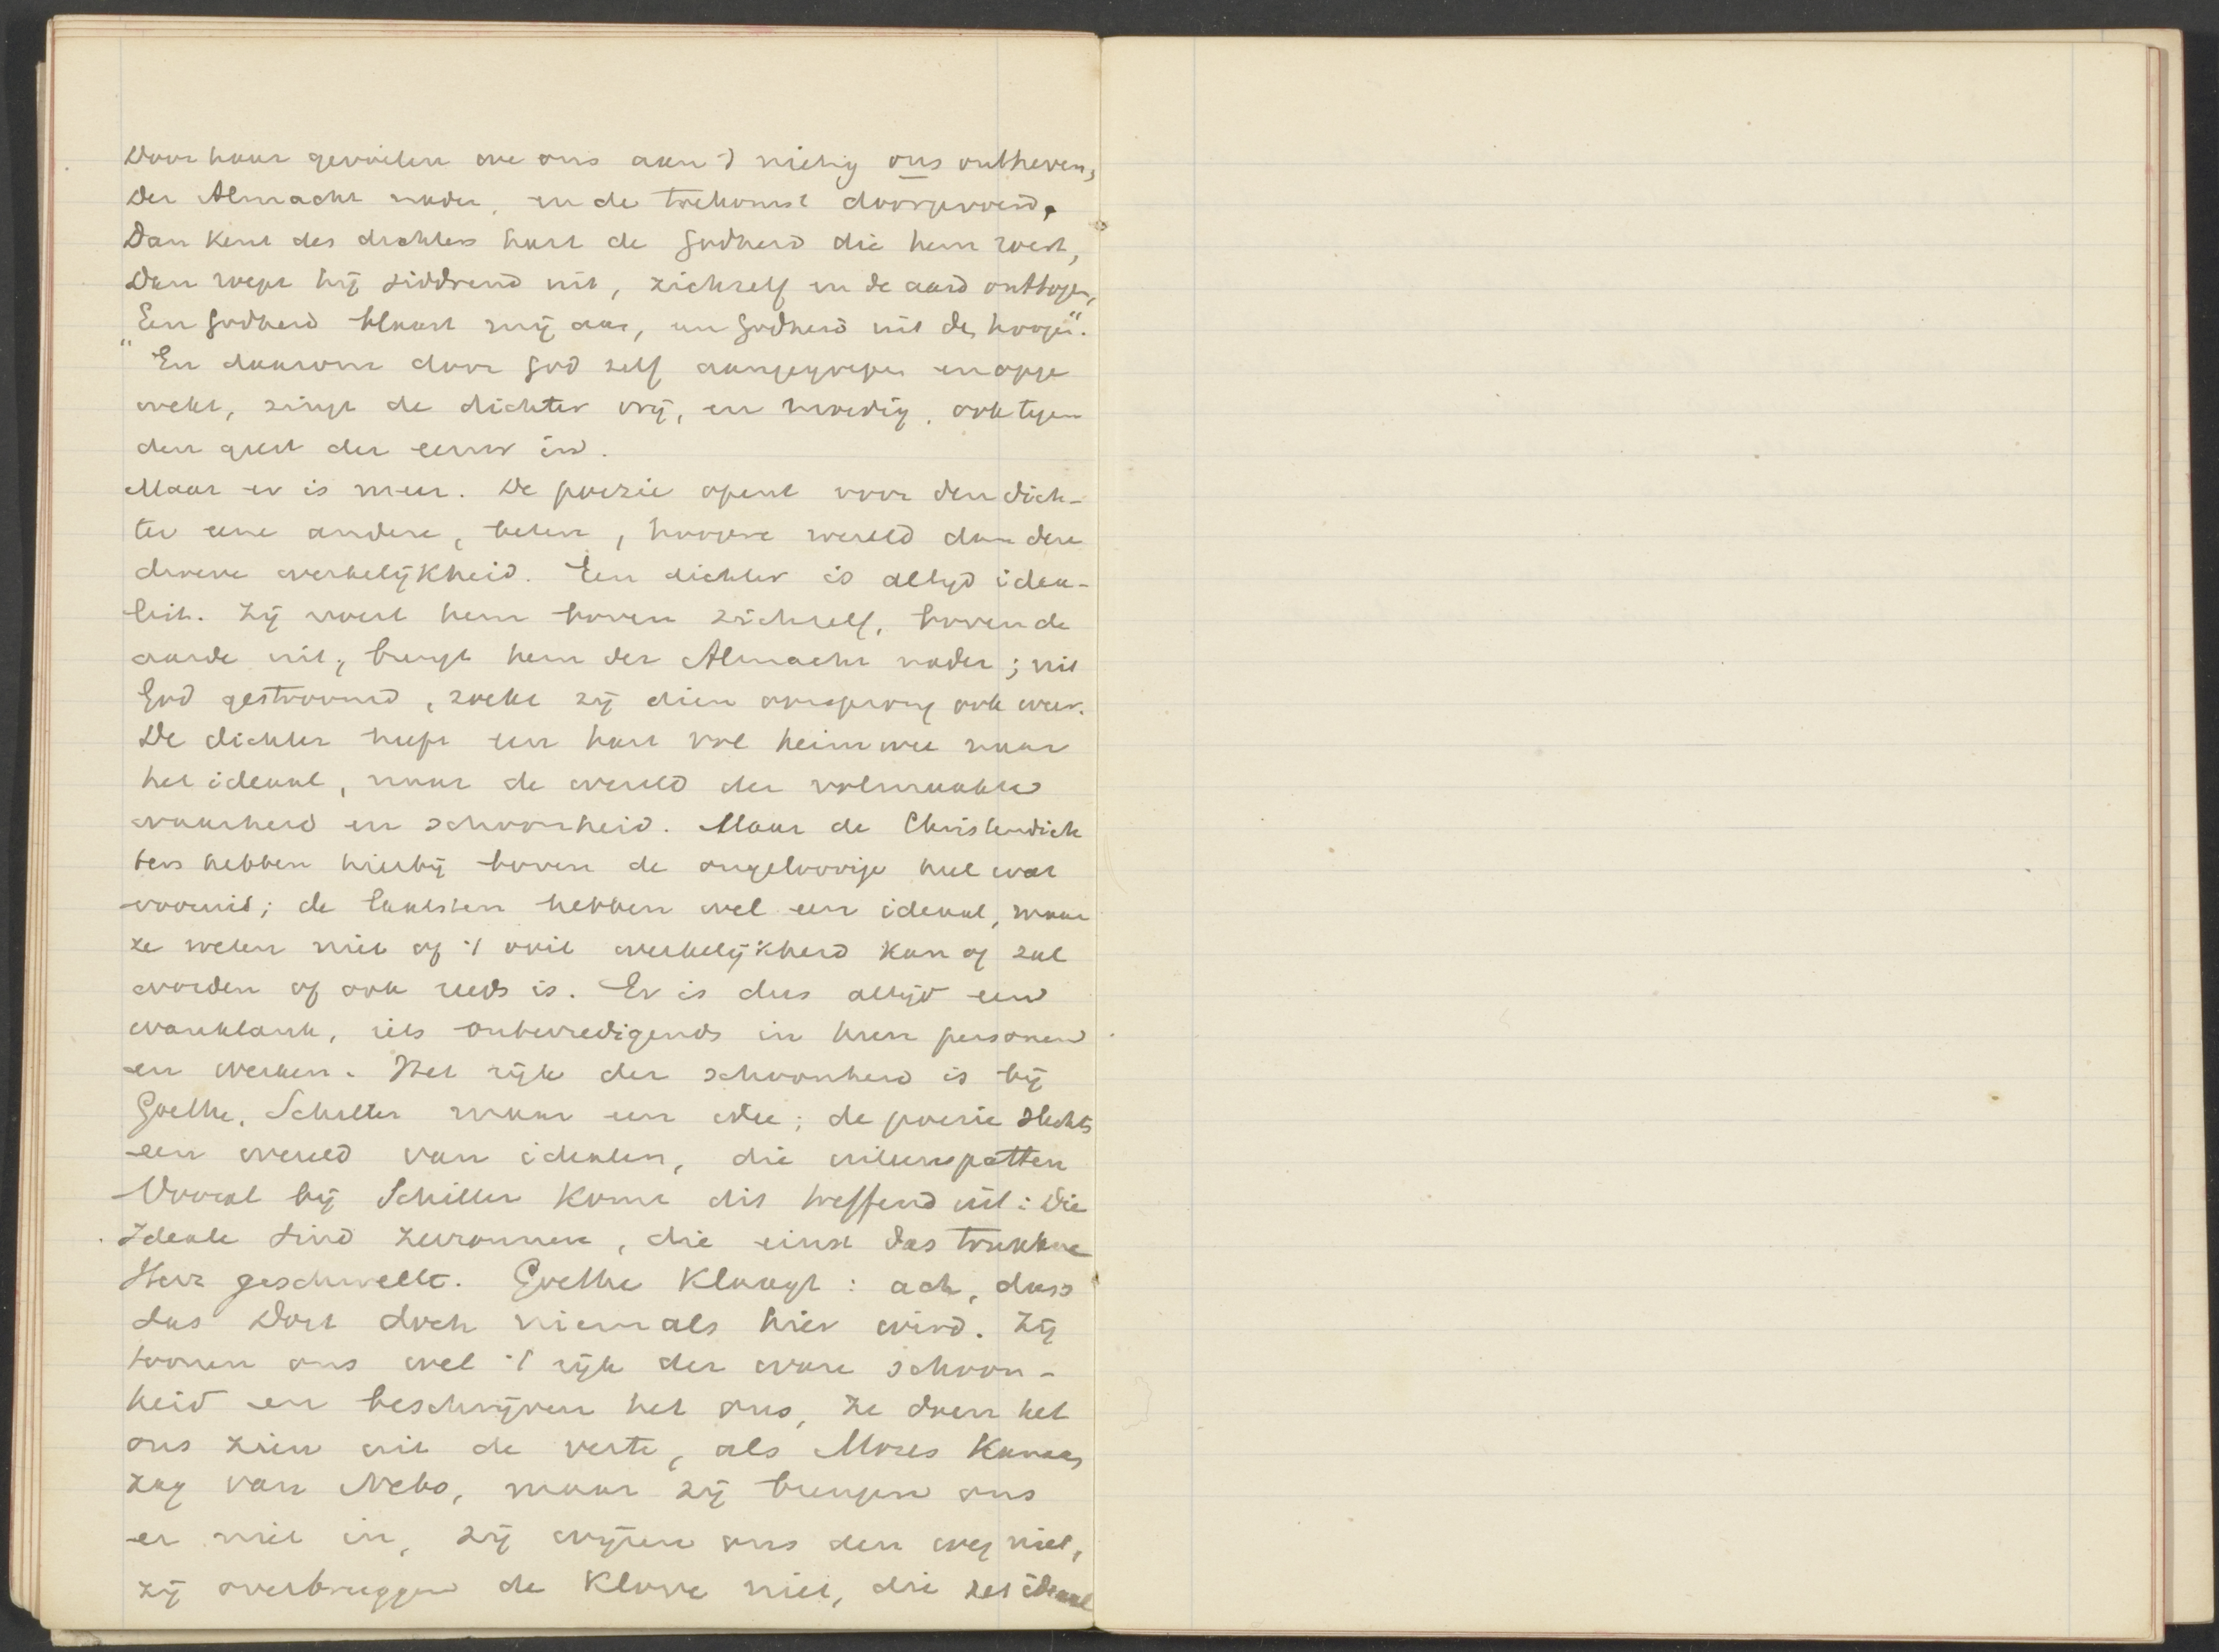 Door haar gevoelen we ons aan 't nietig ons ontheven,
Der Almacht nader, in de toekomst doorgevoerd,
Dan kent des dichters hart de Godheid die hem roert,
Dan roept hij siddrend uit, zichzelf en de aard onttogen,
"Een Godheid blaast mij aan, een Godheid uit den hoogen".
En daarom door God zelf aangegrepen en opge
wekt, zingt de dichter vrij, en moedig, ook tegen
den geest der eeuw in.
Maar er is meer. De poezie opent voor den dich-
ter eene andere, betere, hoogere wereld dan deze
droeve werkelijkheid. Een dichter is altijd idea-
list. Zij voert hem boven zichzelf, boven de
aarde uit, brengt hem der Almacht nader; uit
God gestroomd, zoekt zij dien oorsprong ook weer.
De dichter heeft een hart vol heimwee naar
het ideaal, naar de wereld der volmaakte
waarheid en schoonheid. Maar de Christendich
ters hebben hierbij boven de ongeloovige heel wat
vooruit; de laatsten hebben wel een ideaal, maar
ze weten niet of 't ooit werkelijkheid kan of zal
worden of ook reeds is. Er is dus altijd een
wanklank, iets onbevredigends in hun personen
en werken. Het rijk der schoonheid is bij
Goethe, Schiller maar een idee; de poezie slechts
een wereld van idealen, die uiteenspatten
Vooral bij Schiller komt dit treffend uit: Die
Ideale sind zerronnen, die einst das trunkne
Herz geschwellt. Goethe klaagt: ach, dass
das Dort doch niemals hier wird. Zij
toonen ons wel 't rijk der ware schoon-
heid en beschrijven het ons, ze doen het
ons zien uit de verte, als Mozes Kanaan
zag van Nebo, maar zij brengen ons
er niet in, zij wijzen ons den weg niet,
zij overbruggen de klove niet, die het ideaal